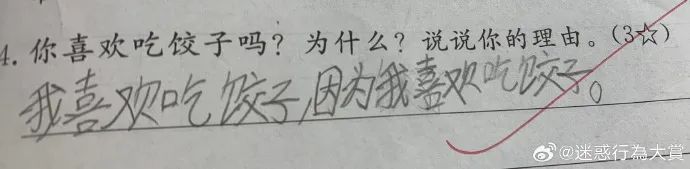 4. 你喜欢吃饺子吗？为什么？说说你的理由。(3☆)
我喜欢吃饺子,因为我喜欢吃饺子。
@迷惑行為大賞